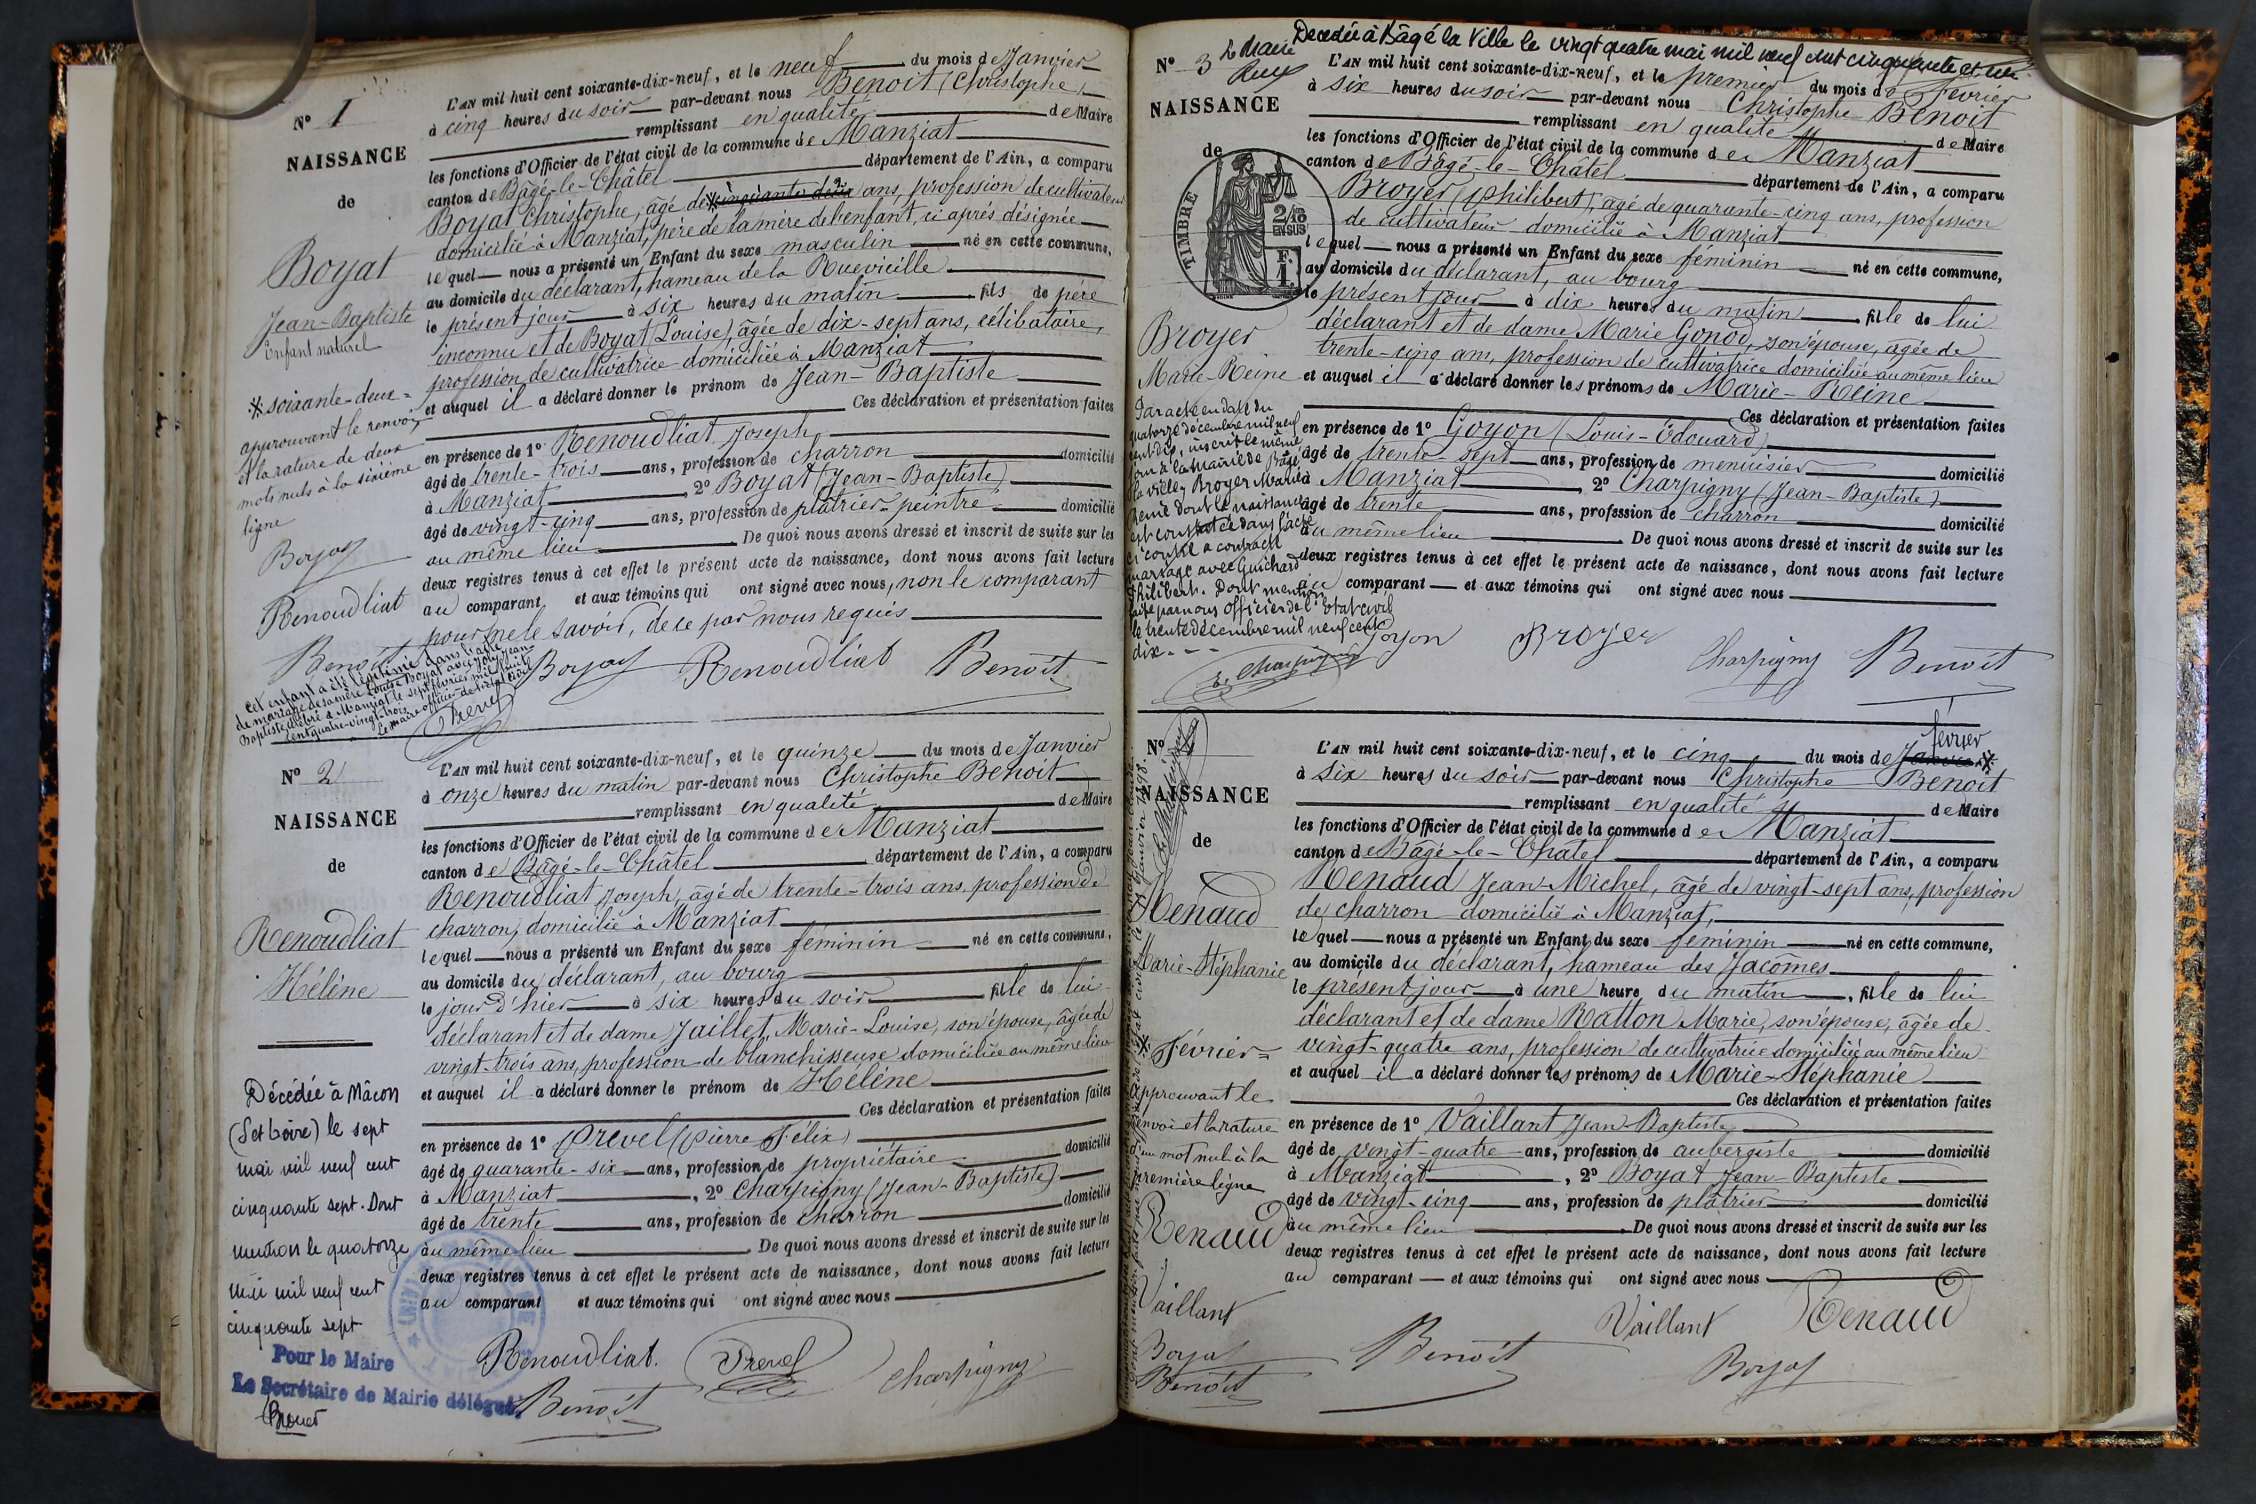 N° 1
NAISSANCE
de
Boyat
Jean-Baptiste
Enfant naturel
* soixante-deux =
approuvant le renvoi
et la rature de deux
mots nuls à la sixième
ligne
Boyat
Renoudliat
Benoit
cet enfant a été légitimé dans l'acte
de mariage de sa mère Louise Boyat avec Joly Jean-
Baptiste célébré à Manziat le sept février mil huit
cent quatre-vingt-trois
Le maire officier de l'état civil
Prevel
L'AN mil huit cent soixante-dix-neuf, et le neuf du mois de Janvier
à cinq heures du soir par-devant nous Benoit (Christophe)
remplissant en qualité de Maire
les fonctions d'Officier de l'état civil de la commune de Manziat
canton de Bâgé-le-Châtel département de l'Ain, a comparu
Boyat Christophe, âgé de * cinquante-deux ans, profession de cultivateur
domicilié à Manziat, père de la mère de l'enfant, ci après désignée
lequel nous a présenté un Enfant du sexe masculin né en cette commune,
au domicile du déclarant, hameau de la Ruevieille
le présent jour à six heures du matin fils de père
inconnu et de Boyat (Louise), âgée de dix-sept ans, célibataire,
profession de cultivatrice domiciliée à Manziat
et auquel il a déclaré donner le prénom de Jean-Baptiste
Ces déclaration et présentation faites
en présence de 1° Renoudliat Joseph
âgé de trente-trois ans, profession de charron domicilié
à Manziat, 2° Boyat (Jean-Baptiste)
âgé de vingt-cinq ans, profession de plâtrier-peintre domicilié
au même lieu De quoi nous avons dressé et inscrit de suite sur les
deux registres tenus à cet effet le présent acte de naissance, dont nous avons fait lecture
au comparant et aux témoins qui ont signé avec nous, non le comparant
pour ne le savoir, de ce par nous requis
Boyat Renoudliat Benoit
N° 2
NAISSANCE
de
Renoudliat
Hélène
Décédée à Mâcon
(S et Loire) le sept
mai mil neuf cent
cinquante sept. Dont
mention le quatorze
mai mil neuf cent
cinquante sept
Pour le Maire
Le Secrétaire de Mairie délégué,
L'AN mil huit cent soixante-dix-neuf, et le quinze du mois de Janvier
à onze heures du matin par-devant nous Christophe Benoit
remplissant en qualité de Maire
les fonctions d'Officier de l'état civil de la commune de Manziat
canton de Bâgé-le-Châtel département de l'Ain, a comparu
Renoudliat Joseph, âgé de trente-trois ans, profession de
charron, domicilié à Manziat
lequel nous a présenté un Enfant du sexe féminin né en cette commune,
au domicile du déclarant, au bourg
le jour d'hier à six heures du soir fille de lui
déclarant et de dame Jaillet, Marie-Louise, son épouse, âgée de
vingt-trois ans, profession de blanchisseuse domiciliée au même lieu
et auquel il a déclaré donner le prénom de Hélène
Ces déclaration et présentation faites
en présence de 1° Prevel (Pierre Félix)
âgé de quarante-six ans, profession de propriétaire domicilié
à Manziat, 2° Charpigny (Jean-Baptiste)
âgé de trente ans, profession de charron domicilié
au même lieu De quoi nous avons dressé et inscrit de suite sur les
deux registres tenus à cet effet le présent acte de naissance, dont nous avons fait lecture
au comparant et aux témoins qui ont signé avec nous
Renoudliat. Prevel Charpigny
Benoit
Décédée à Bâgé la Ville le vingt quatre mai mil neuf cent cinquante et un.
Le Maire
N° 3
NAISSANCE
de
TIMBRE
2/10 EN SUS
F. 1.
Broyer
Marie-Reine
Par acte en date du
quatorze décembre mil neuf
cent dix, inscrit le même
jour à la mairie de Bâgé
la ville, Broyer Marie
Reine dont la naissance
est constatée dans l'acte
ci contre a contracté
mariage avec Guichard
Philibert. Dont mention
faite par nous officier de l'état civil
le trente décembre mil neuf cent
dix.
E. Charpigny
L'AN mil huit cent soixante-dix-neuf, et le premier du mois de Février
à six heures du soir par-devant nous Christophe Benoit
remplissant en qualité de Maire
les fonctions d'Officier de l'état civil de la commune de Manziat
canton de Bâgé-le-Châtel département de l'Ain, a comparu
Broyer (Philibert), âgé de quarante-cinq ans, profession
de cultivateur domicilié à Manziat
lequel nous a présenté un Enfant du sexe féminin né en cette commune,
au domicile du déclarant, au bourg
le présent jour à dix heures du matin fille de lui
déclarant et de dame Marie Gonod, son épouse, âgée de
trente-cinq ans, profession de cultivatrice domiciliée au même lieu
et auquel il a déclaré donner les prénoms de Marie-Reine
Ces déclaration et présentation faites
en présence de 1° Goyon (Louis-Edouard)
âgé de trente-sept ans, profession de menuisier domicilié
à Manziat, 2° Charpigny (Jean-Baptiste)
âgé de trente ans, profession de charron domicilié
au même lieu De quoi nous avons dressé et inscrit de suite sur les
deux registres tenus à cet effet le présent acte de naissance, dont nous avons fait lecture
au comparant et aux témoins qui ont signé avec nous
Goyon Broyer Charpigny Benoit
N°
NAISSANCE
de
Renaud
Marie-Stéphanie
* Février =
approuvant le
renvoi et la rature
d'un mot nul à la
première ligne
Renaud
Vaillant
Boyat
Benoit
L'AN mil huit cent soixante-dix-neuf, et le cinq du mois de Janvier * février
à six heures du soir par-devant nous Christophe Benoit
remplissant en qualité de Maire
les fonctions d'Officier de l'état civil de la commune de Manziat
canton de Bâgé-le-Châtel département de l'Ain, a comparu
Renaud Jean-Michel, âgé de vingt-sept ans, profession
de charron domicilié à Manziat,
lequel nous a présenté un Enfant du sexe féminin né en cette commune,
au domicile du déclarant, hameau des Jacômes
le présent jour à une heure du matin, fille de lui
déclarant et de dame Ratton Marie, son épouse, âgée de
vingt-quatre ans, profession de cultivatrice domiciliée au même lieu
et auquel il a déclaré donner les prénoms de Marie-Stéphanie
Ces déclaration et présentation faites
en présence de 1° Vaillant Jean Baptiste
âgé de vingt-quatre ans, profession de aubergiste domicilié
à Manziat, 2° Boyat Jean-Baptiste
âgé de vingt-cinq ans, profession de plâtrier domicilié
au même lieu De quoi nous avons dressé et inscrit de suite sur les
deux registres tenus à cet effet le présent acte de naissance, dont nous avons fait lecture
au comparant et aux témoins qui ont signé avec nous
Vaillant Renaud
Benoit Boyat